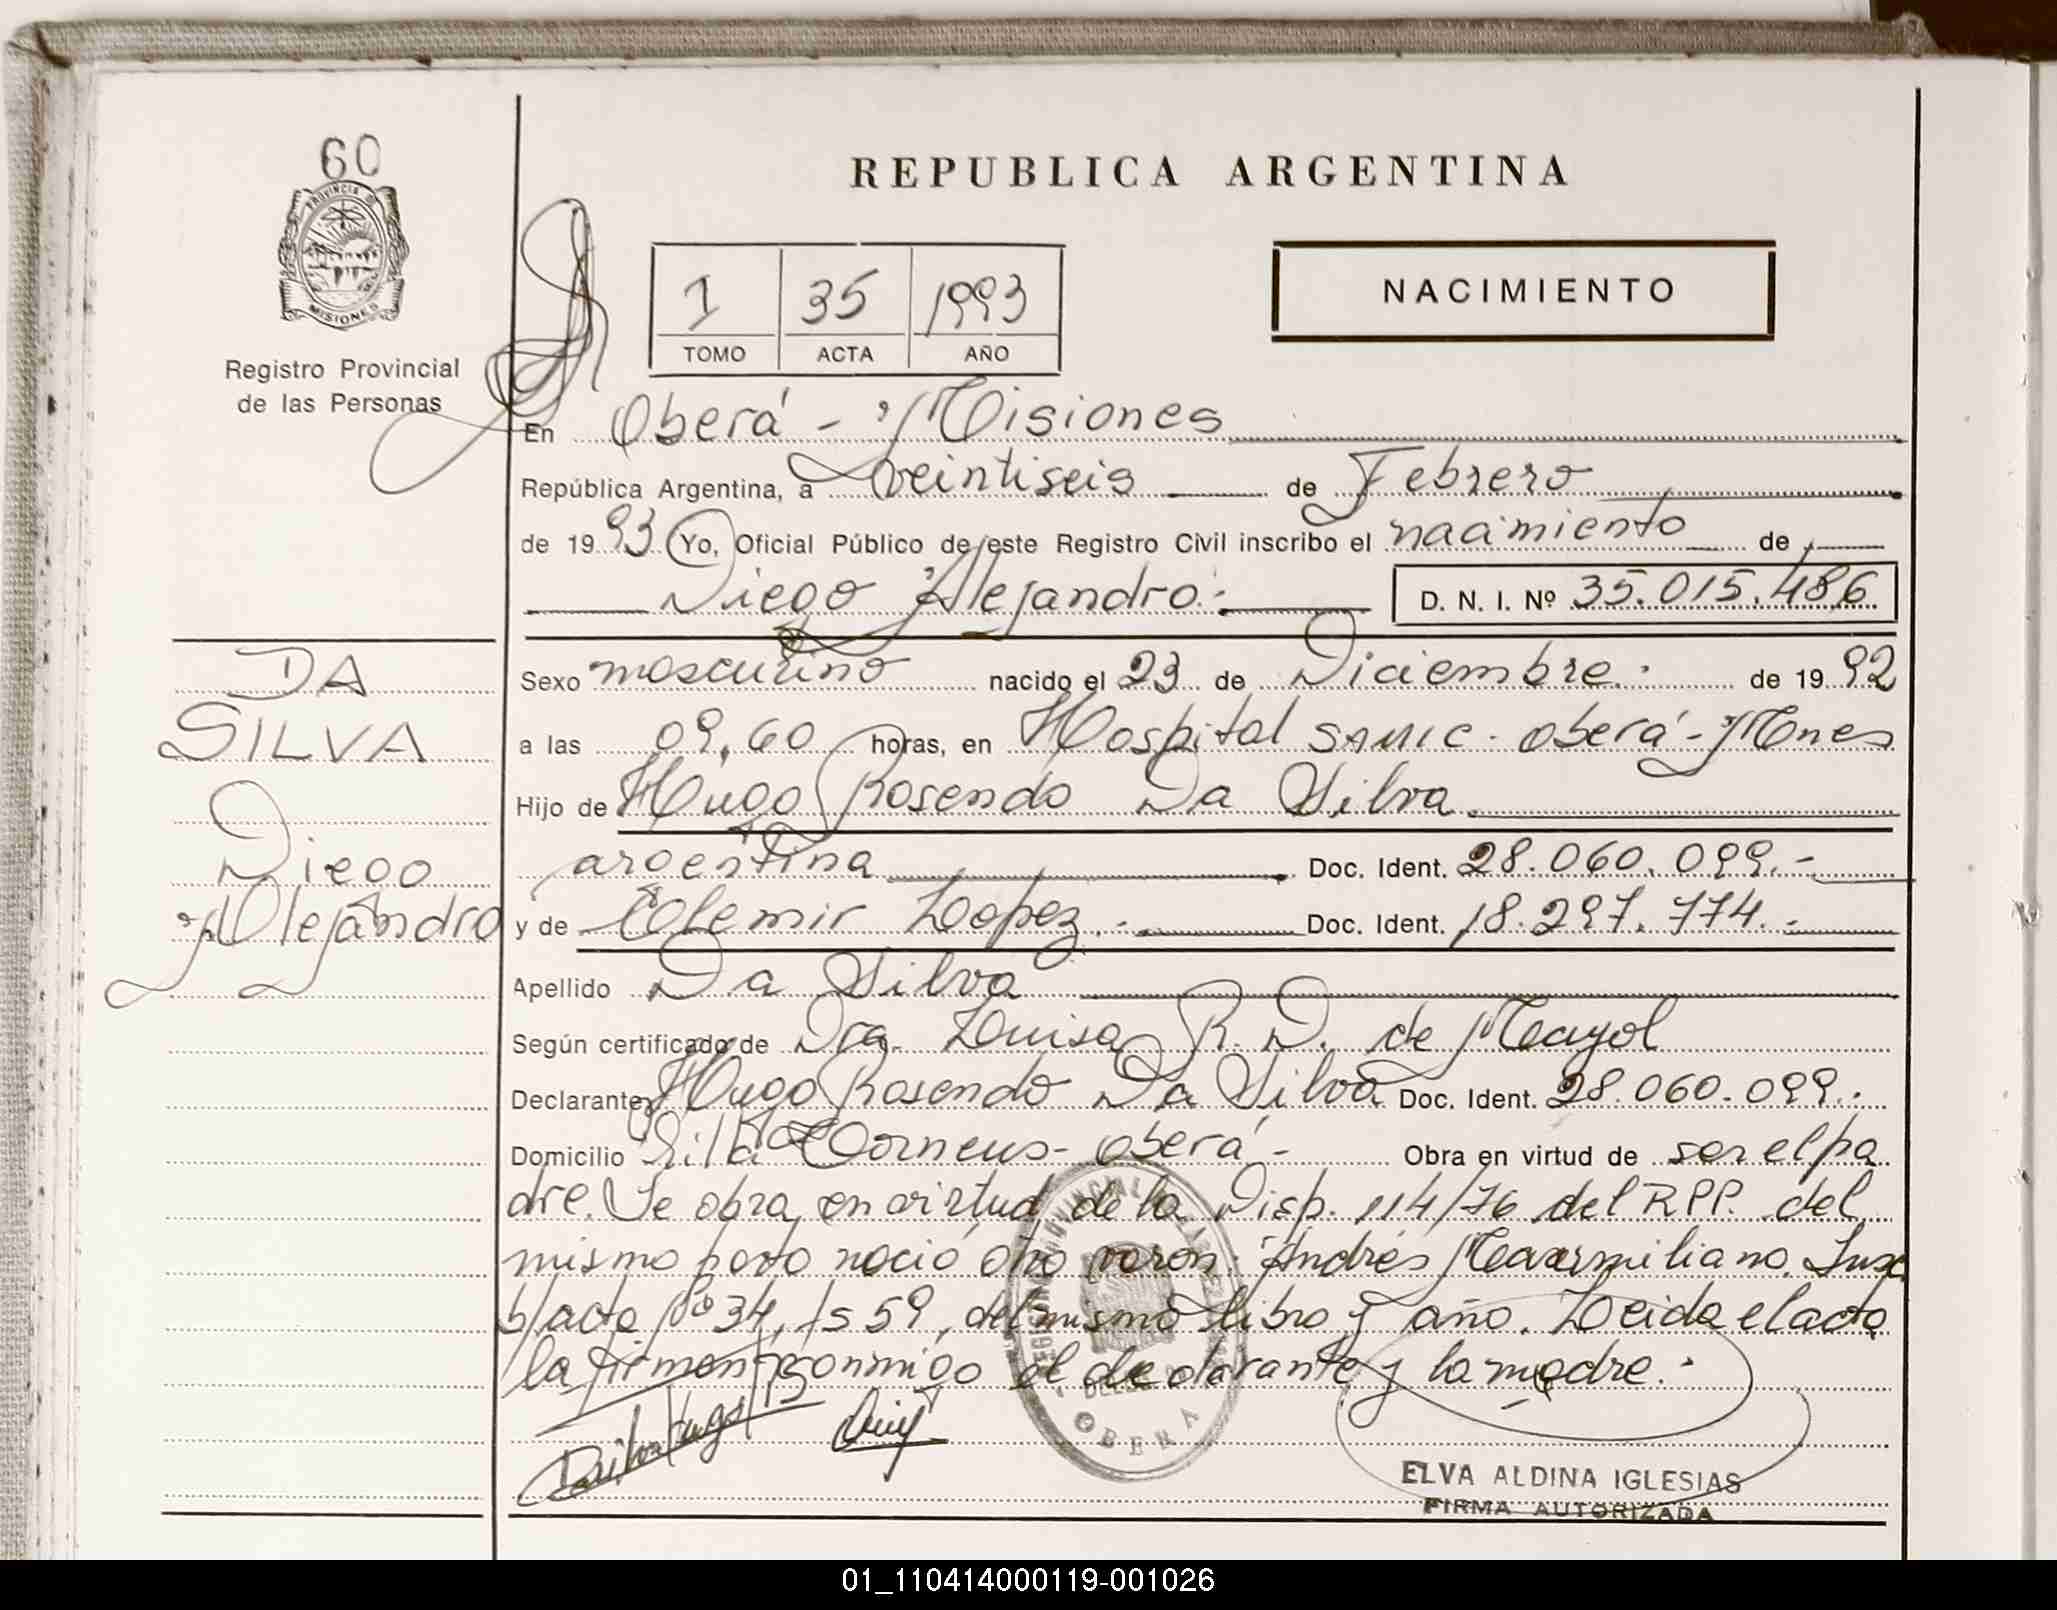 60
PROVINCIA D
MISIONES
Registro Provincial
de las Personas
REPUBLICA ARGENTINA
1 35 1993
TOMO ACTA AÑO
NACIMIENTO
En Oberá - Misiones
República Argentina, a veintiseis de Febrero
de 1993 Yo, Oficial Público de este Registro Civil inscribo el nacimiento de
Diego Alejandro.- D. N. I. Nº 35.015.486
DA
SILVA
Diego
Alejandro
Sexo masculino nacido el 23 de Diciembre.- de 1992
a las 09,60 horas, en Hospital SAMIC - Oberá - Mnes
Hijo de Hugo Rosendo Da Silva
argentina Doc. Ident. 28.060.099.-
y de Lopez.- Doc. Ident. 18.297.774.-
Apellido Da Silva
Según certificado de Dra. Luisa R. D. de Mayol
Declarante Hugo Rosendo Da Silva Doc. Ident. 28.060.099.-
Domicilio Oberá - Obra en virtud de ser el pa
dre. Se obra en virtud de la Disp. 114/76 del RPP. del
mismo parto nació otro varon: Andrés Maximiliano.
b/acta Nº 34, fs 59, del mismo libro y año. Leida el acta
la firman conmigo el declarante y la madre.-
OBERA
ELVA ALDINA IGLESIAS
FIRMA AUTORIZADA
01_110414000119-001026